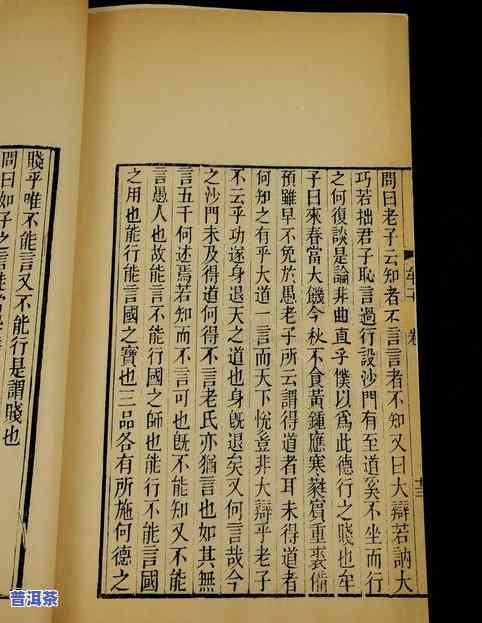 卷
問曰老子云知者不言言者不知又曰大辯若訥大
巧若拙君子恥言過行設沙門有至道奚不坐而行
之何復談是論非曲直乎僕以為此德行之賤也牟
子曰來春當大饑今秋不食黃鍾應寒蕤賓重裘備
預雖早不免於愚老子所云謂得道者耳未得道者
何知之有乎大道一言而天下悅豈非大辯乎老子
不云乎功遂身退天之道也身旣退矣又何言哉今
之沙門未及得道何得不言老氏亦猶言也如其無
言五千何述焉若知而不言可也旣不能知又不能
言愚人也故能言不能行國之師也能行不能言國
之用也能行能言國之寶也三品各有所施何德之
賤乎唯不能言又不能行是謂賤也
問曰如子之言徒當
普洱茶